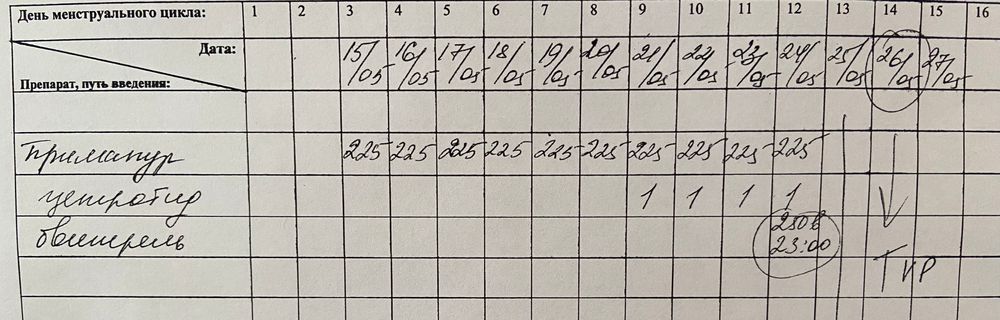 День менструального цикла: 1 2 3 4 5 6 7 8 9 10 11 12 13 14 15 16
Дата: 15/05 16/05 17/05 18/05 19/05 20/05 21/05 22/05 23/05 24/05 25/05 26/05 27/05
Препарат, путь введения:
Примапур 225 225 225 225 225 225 225 225 225 225
цетротид 1 1 1 1
овитрель 250 в
23:00
ТВР